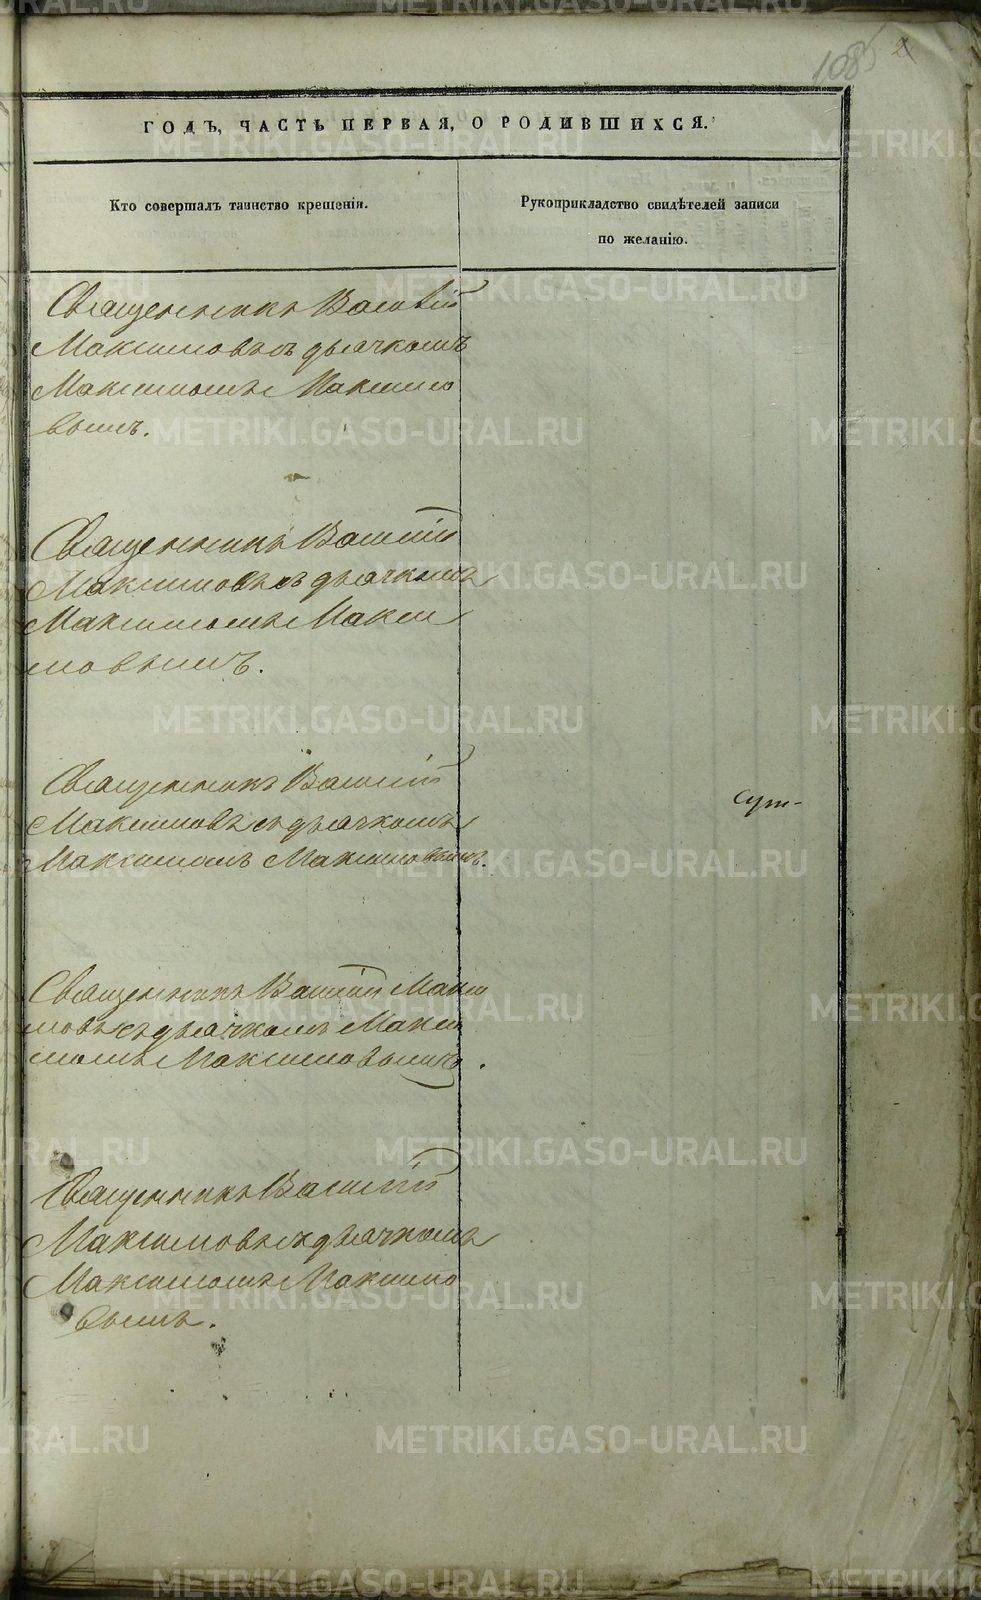 108
2
ГОДЪ, ЧАСТЬ ПЕРВАЯ, О РОДИВШИХСЯ.
Кто совершалъ таинство крещенія.
Рукоприкладство свидѣтелей записи
по желанію.
Священникъ Василій
Максимовъ съ дьячкомъ
Максимомъ Максимо
вымъ.
Священникъ Василій
Максимовъ съ дьячкомъ
Максимомъ Макси
мовымъ.
Священникъ Василій
Максимовъ съ дьячкомъ
Максимомъ Максимовымъ.
Священникъ Василій Макси
мовъ съ дьячкомъ Макси
момъ Максимовымъ.
Священникъ Василій
Максимовъ съ дьячкомъ
Максимомъ Максимо
вымъ.
METRIKI.GASO-URAL.RU